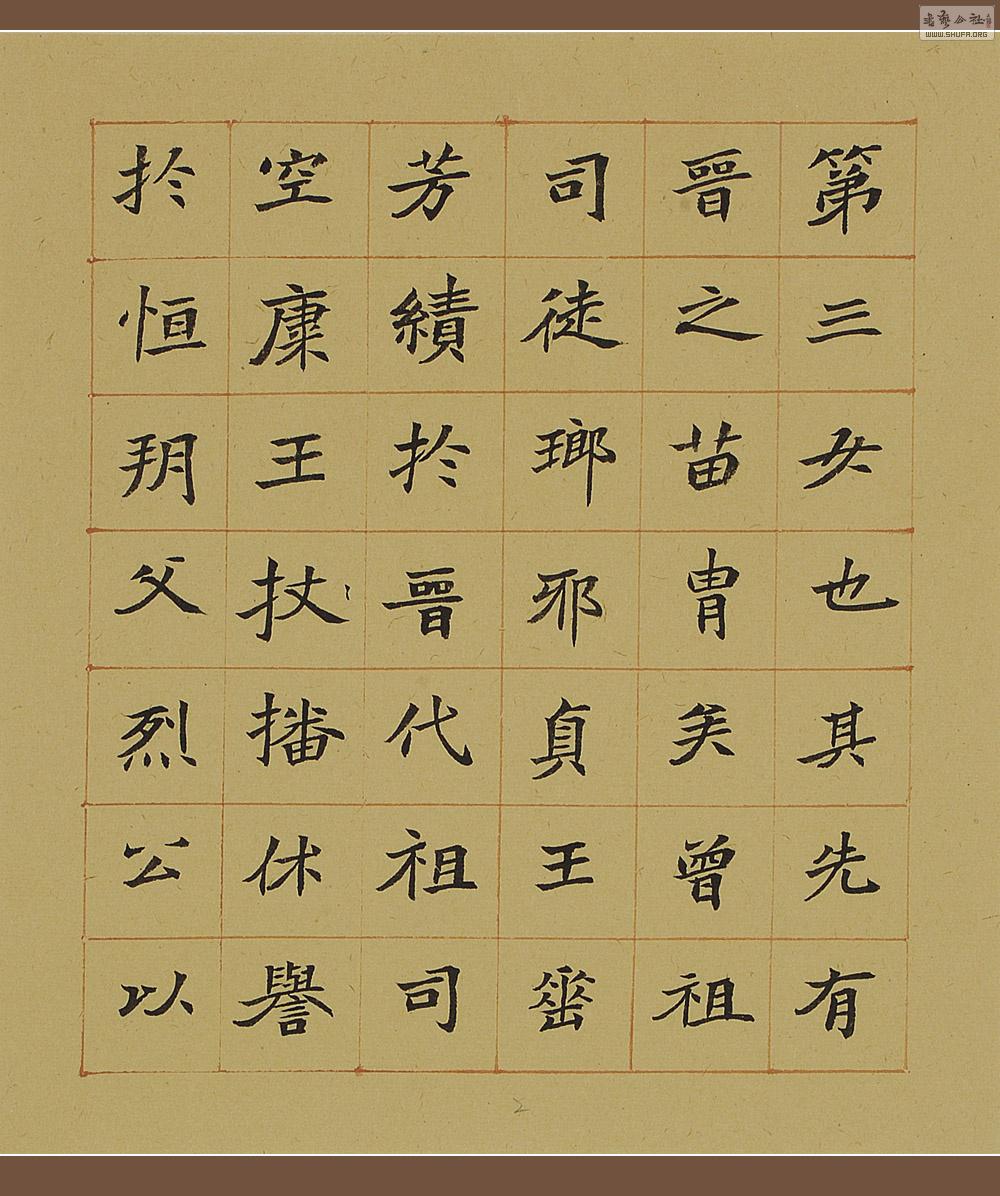 第三女也其先有
晉之苗胄矣曾祖
司徒瑯邪貞王𡶶
芳績於晉代祖司
空康王扙播休譽
於恒玥父烈公以
2
WWW.SHUFA.ORG